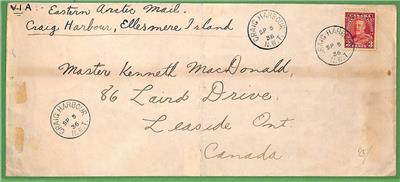 VIA - Eastern Arctic Mail.
Craig Harbour, Ellesmere Island
CANADA
3
CRAIG HARBOUR
SP 5
36
N.W.T.
CRAIG HARBOUR
SP 5
36
N.W.T.
Master Kenneth MacDonald,
86 Laird Drive.
Leaside Ont.
Canada
CRAIG HARBOUR
SP 5
36
N.W.T.